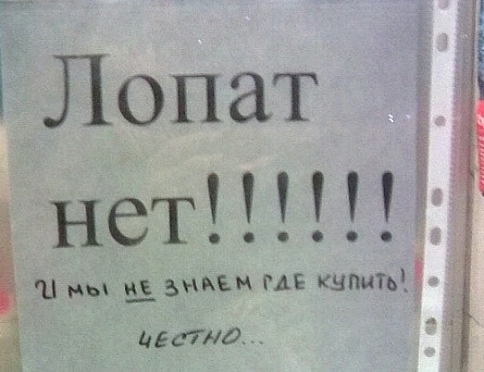 Лопат
нет!!!!!!
И мы не знаем где купить!
честно...